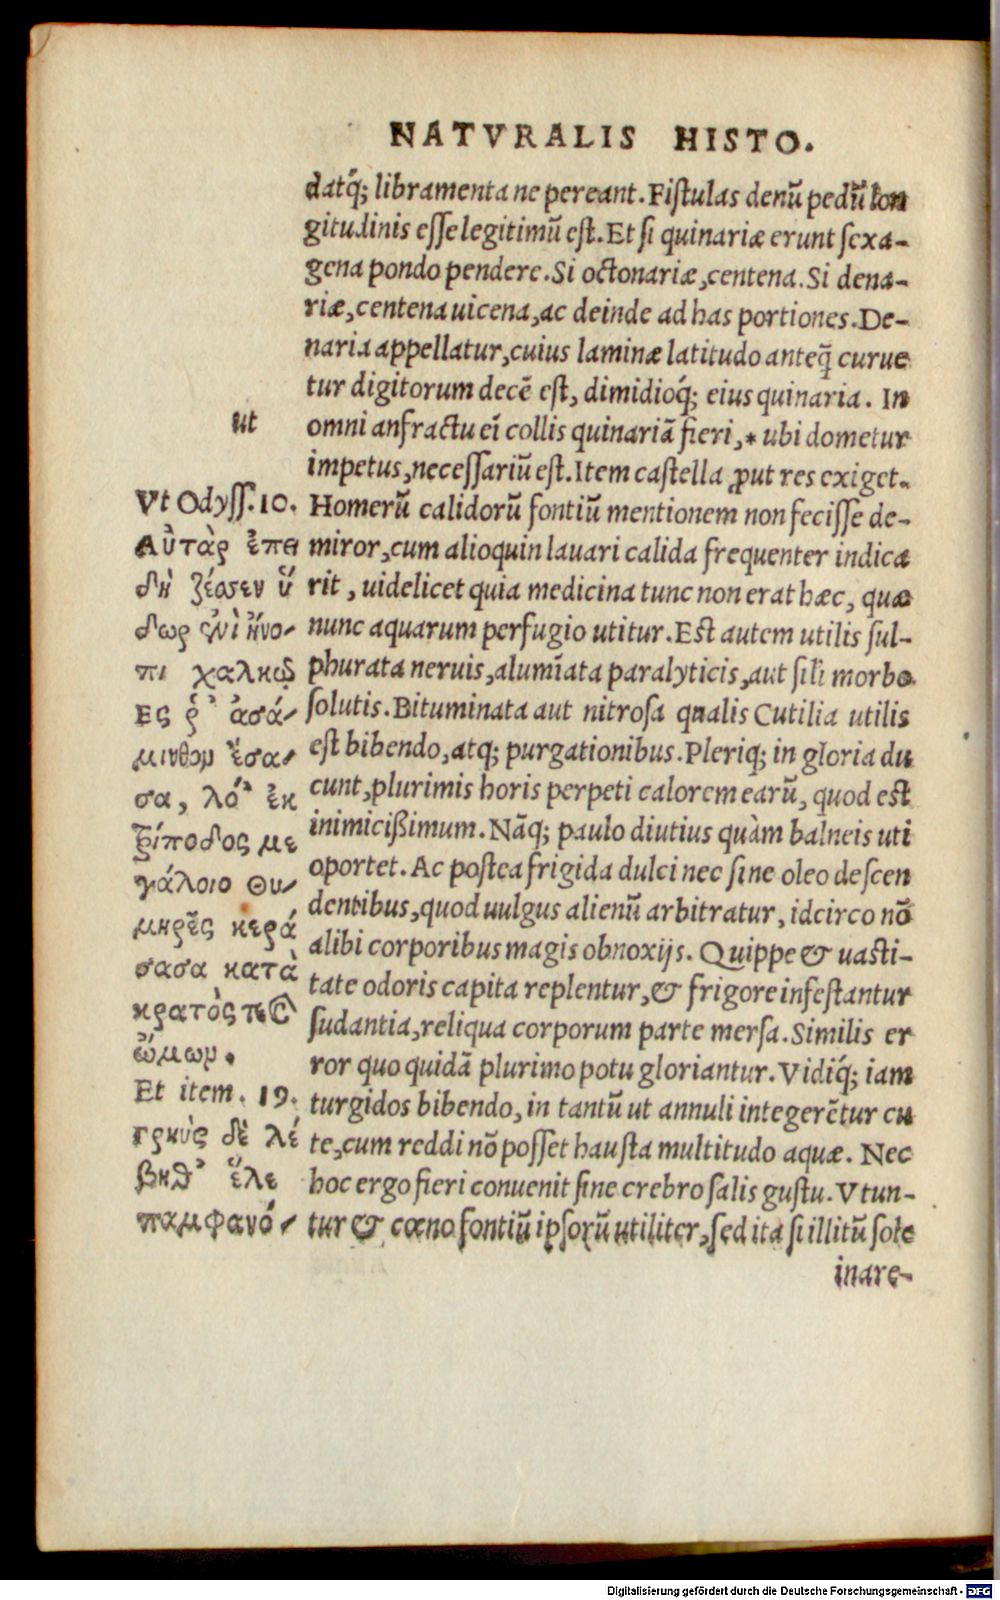 NATVRALIS HISTO.
datq́; libramenta ne pereant. Fistulas denū pedū lon
gitudinis esse legitimū est. Et si quinariæ erunt sexa-
gena pondo pendere. Si octonariæ, centena. Si dena-
riæ, centena uicena, ac deinde ad has portiones. De-
naria appellatur, cuius laminæ latitudo anteq̄ curue
tur digitorum decē est, dimidioq́; eius quinaria. In
omni anfractu eī collis quinariā fieri,* ubi dometur
impetus, necessariū est. Item castella ꝓut res exiget.
Homerū calidorū fontiū mentionem non fecisse de-
miror, cum alioquin lauari calida frequenter indica
rit, uidelicet quia medicina tunc non erat hæc, quæ
nunc aquarum perfugio utitur. Est autem utilis sul-
phurata neruis, alumīata paralyticis, aut sili morbo
solutis. Bituminata aut nitrosa qualis Cutilia utilis
est bibendo, atq; purgationibus. Pleriq; in gloria du
cunt, plurimis horis perpeti calorem earū, quod est
inimicißimum. Nāq; paulo diutius quàm balneis uti
oportet. Ac postea frigida dulci nec sine oleo descen
dentibus, quod uulgus alienū arbitratur, idcirco nō
alibi corporibus magis obnoxijs. Quippe & uasti-
tate odoris capita replentur, & frigore infestantur
sudantia, reliqua corporum parte mersa. Similis er
ror quo quidā plurimo potu gloriantur. Vidiq́; iam
turgidos bibendo, in tantū ut annuli integerētur cu
te, cum reddi nō posset hausta multitudo aquæ. Nec
hoc ergo fieri conuenit sine crebro salis gustu. Vtun-
tur & cœno fontiū ipsorū utiliter, sed ita si illitū sole
inare-
ut
Vt Odyss. 10.
Αὐτὰρ ἐπει
δὴ ζέσσεν ὕ
δωρ ἐνὶ ἤνο-
πι χαλκῷ
Ες ῥ' ἀσά-
μινθον ἕσα-
σα, λό' ἐκ
τρίποδος με
γάλοιο Θυ-
μηρὲς κερά
σασα κατὰ
κρατός τε καὶ
ὤμων.
Et item. 19.
γρηὺς δὲ λέ
βηθ' ἕλε
παμφανό-
Digitalisierung gefördert durch die Deutsche Forschungsgemeinschaft - DFG